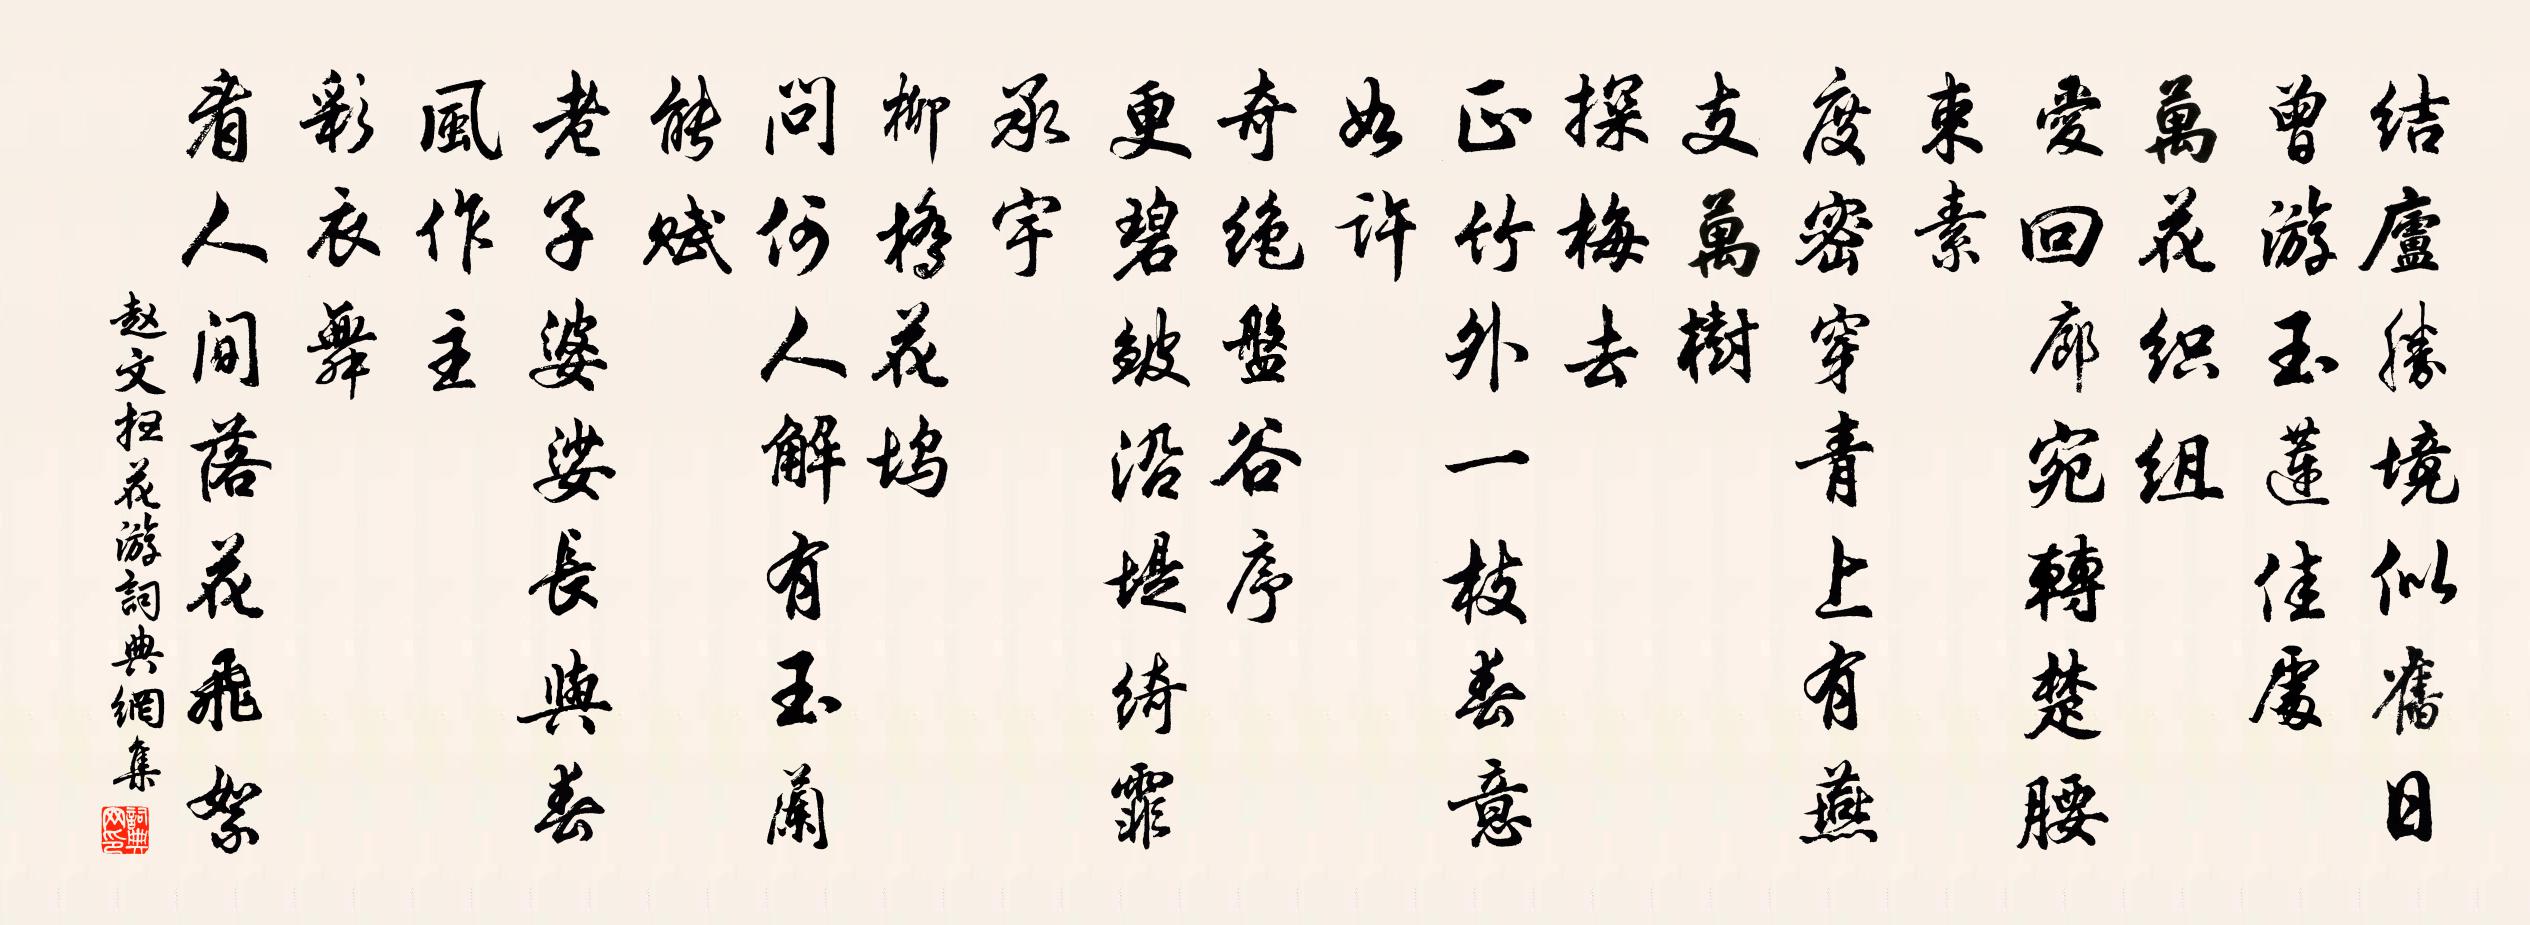 結廬勝境似舊日
曾游玉蓮佳處
萬花织組
愛回廊宛轉楚腰
束素
度密穿青上有燕
支萬樹
探梅去
正竹外一枝春意
如許
奇絶盤谷序
更碧皺沿堤綺霏
承宇
柳橋花塢
問何人解有玉蘭
能賦
老子婆娑長與春
風作主
彩衣舞
看人間落花飛絮
赵文抯花游詞典網集
詞典網印